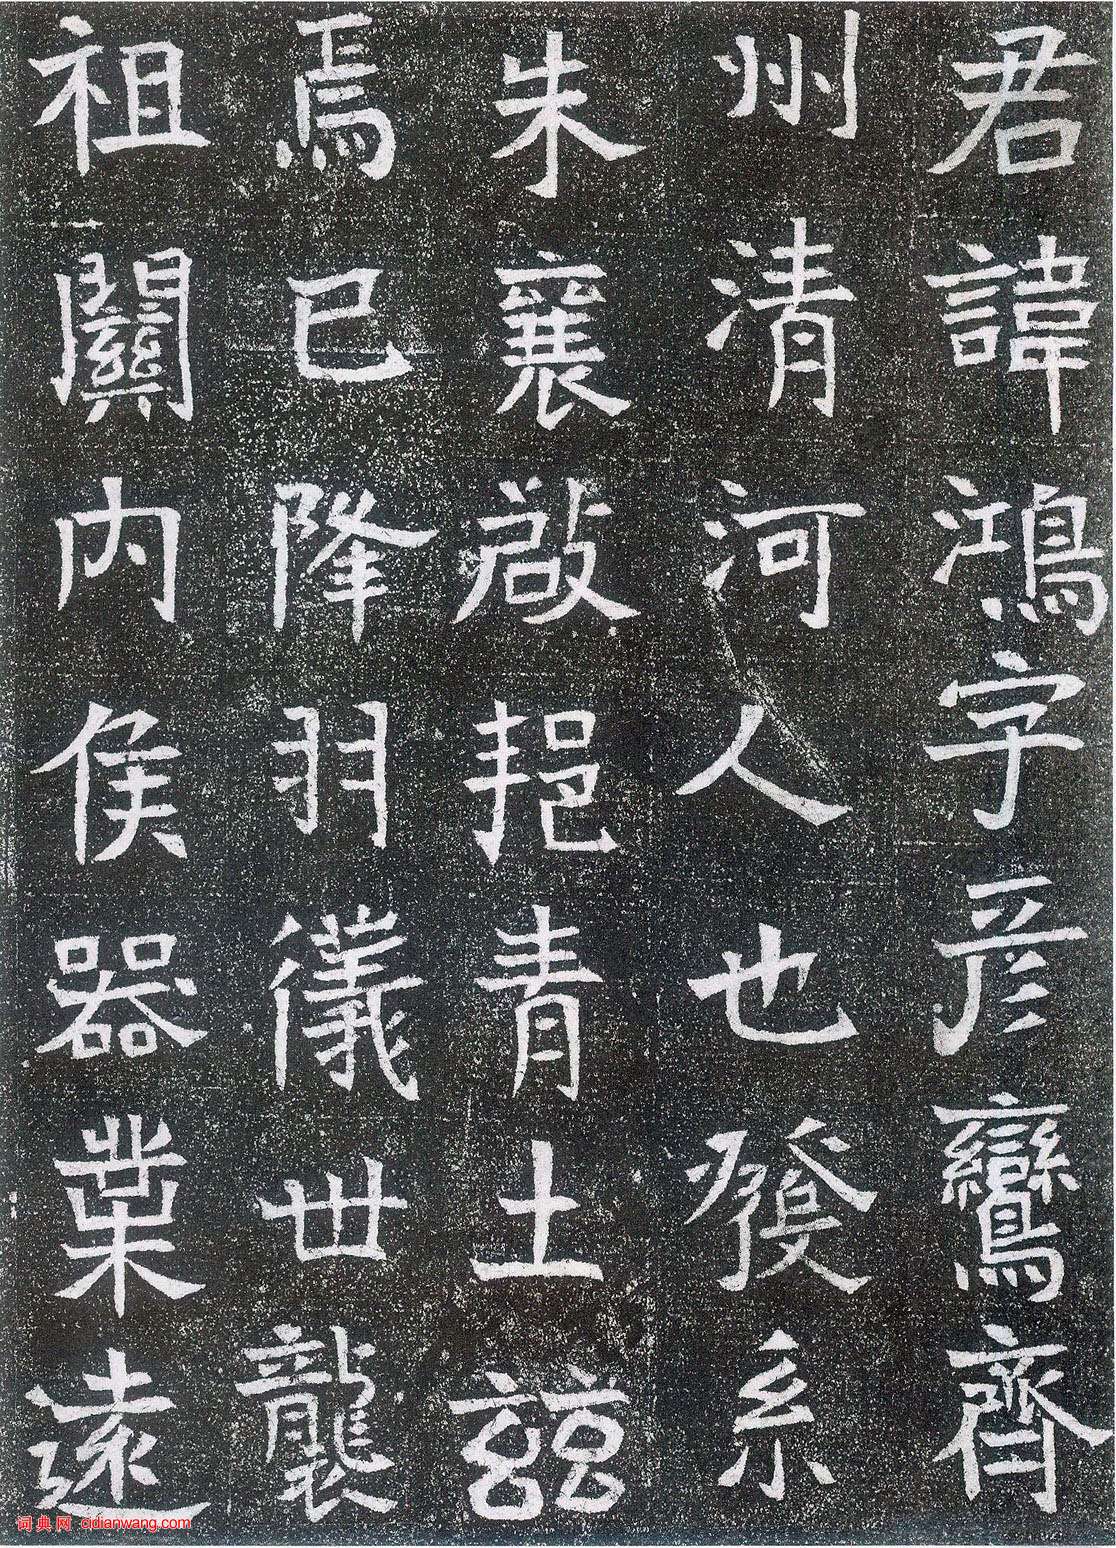 君諱鴻字彦鸞齊
州清河人也發系
朱襄啟邦青土兹
焉已降羽儀丗襲
祖關內侯器業遠
词典网 cidianwang.com